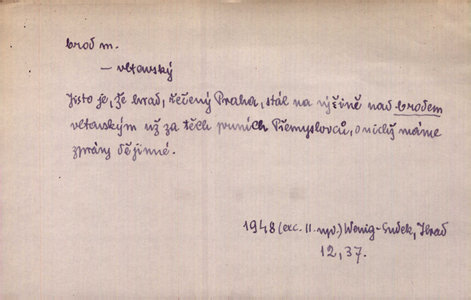 brod m.
– vltavský
Jisto je, že hrad, řečený Praha, stál na výšině nad brodem
vltavským už za těch prvních Přemyslovců, o nichž máme
zprávy dějinné.
1948 (exc. II. vyd.) Wenig-Sudek, Hrad
12, 37.